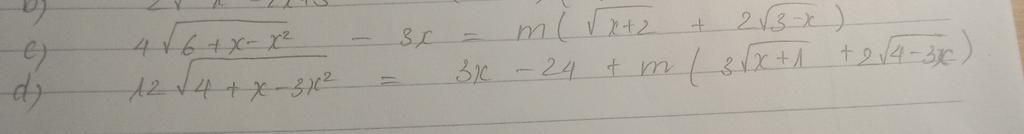 c) 4√(6+x-x²) - 3x = m(√(x+2) + 2√(3-x))
d) 12√(4+x-3x²) = 3x - 24 + m(3√(x+1) + 2√(4-3x))